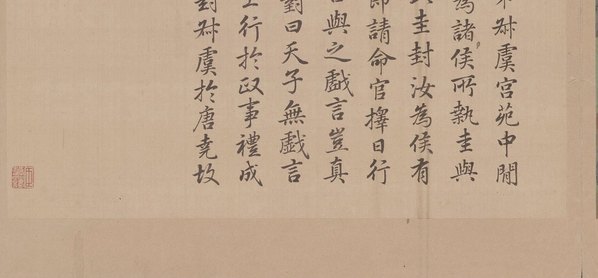 叔虞宮苑中閒
為諸侯所執圭與
圭封汝為侯有
即請命官擇日行
與之戲言豈真
對曰天子無戲言
行於政事禮成
封叔虞於唐堯故